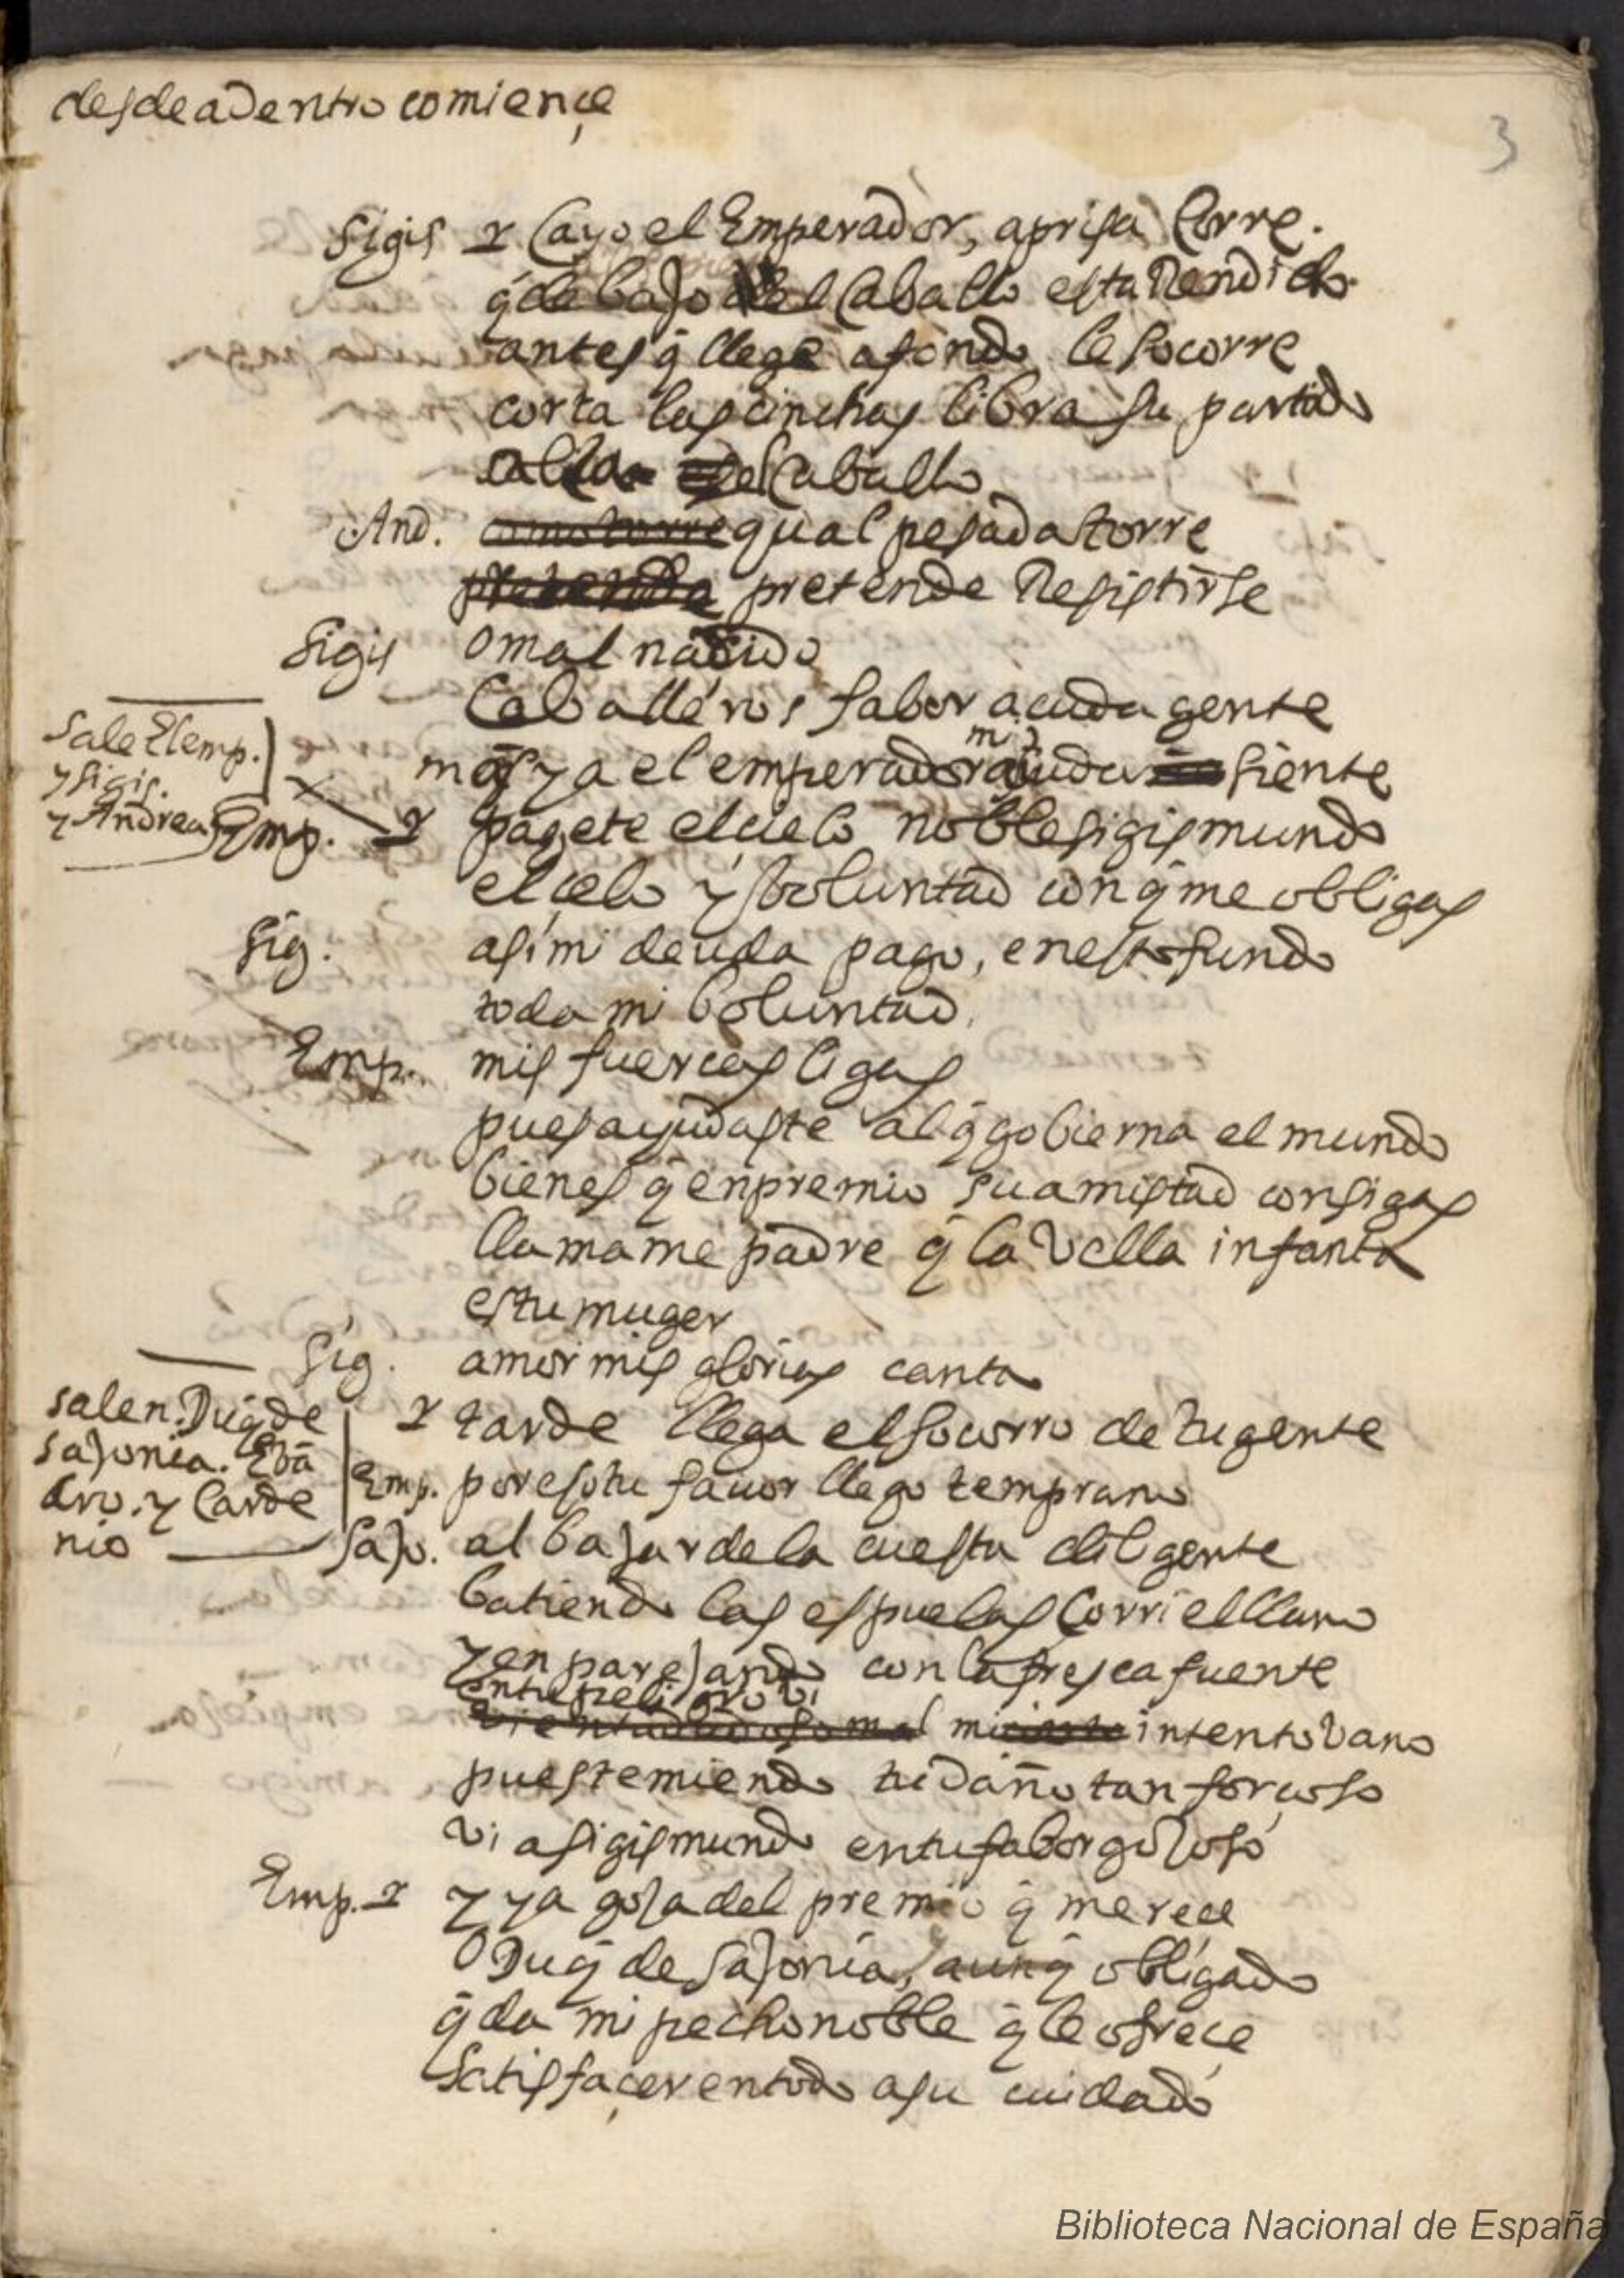 desde adentro comiençe
3
Sigis Cayo el Emperador, aprisa Corre.
q̄ debajo del Caballo esta Rendido.
antes q̄ llege a fondo le socorre
corta las cinchas libra su partido
salta el Caballo
And. como torre qual pesada torre
pretende pretende Resistirse
Sigis o mal nacido
Caballeros fabor acuda gente
Sale El emp.
y sigis.
y Andrea
mas ya el emperador mi aiuda siente
Emp. pagete el cielo noble sigismundo
el çelo y boluntad con q̄ me obligas
Sig. asi mi deuda pago, en esto fundo
toda mi boluntad.
Emp. mis fuerças ligas
pues ayudaste al q̄ gobierna el mundo
bien es q̄ en premio su amistad consigas
llamame padre q̄ la vella infanta
es tu muger
Sig. amor mis glorias canta
salen. Duq̄ de
sajonia. Evā
dro. y Carde
nio
tarde llega el socorro de tu gente
Emp. por eso tu fauor llego temprano
Sajo. al bajar de la cuesta diligente
batiendo las espuelas Corri el llano
y en parejando con la fresca fuente
en tu peligro vi
mi intento vano
pues temiendo tu daño tan forçoso
vi a sigismundo en tu fabor goçoso
Emp. y ya goça del premio q̄ merece
o Duq̄ de Sajonia, aunq̄ obligado
q̄da mi pecho noble q̄ le ofrece
Satisfaçer en todo a su cuidado
Biblioteca Nacional de España